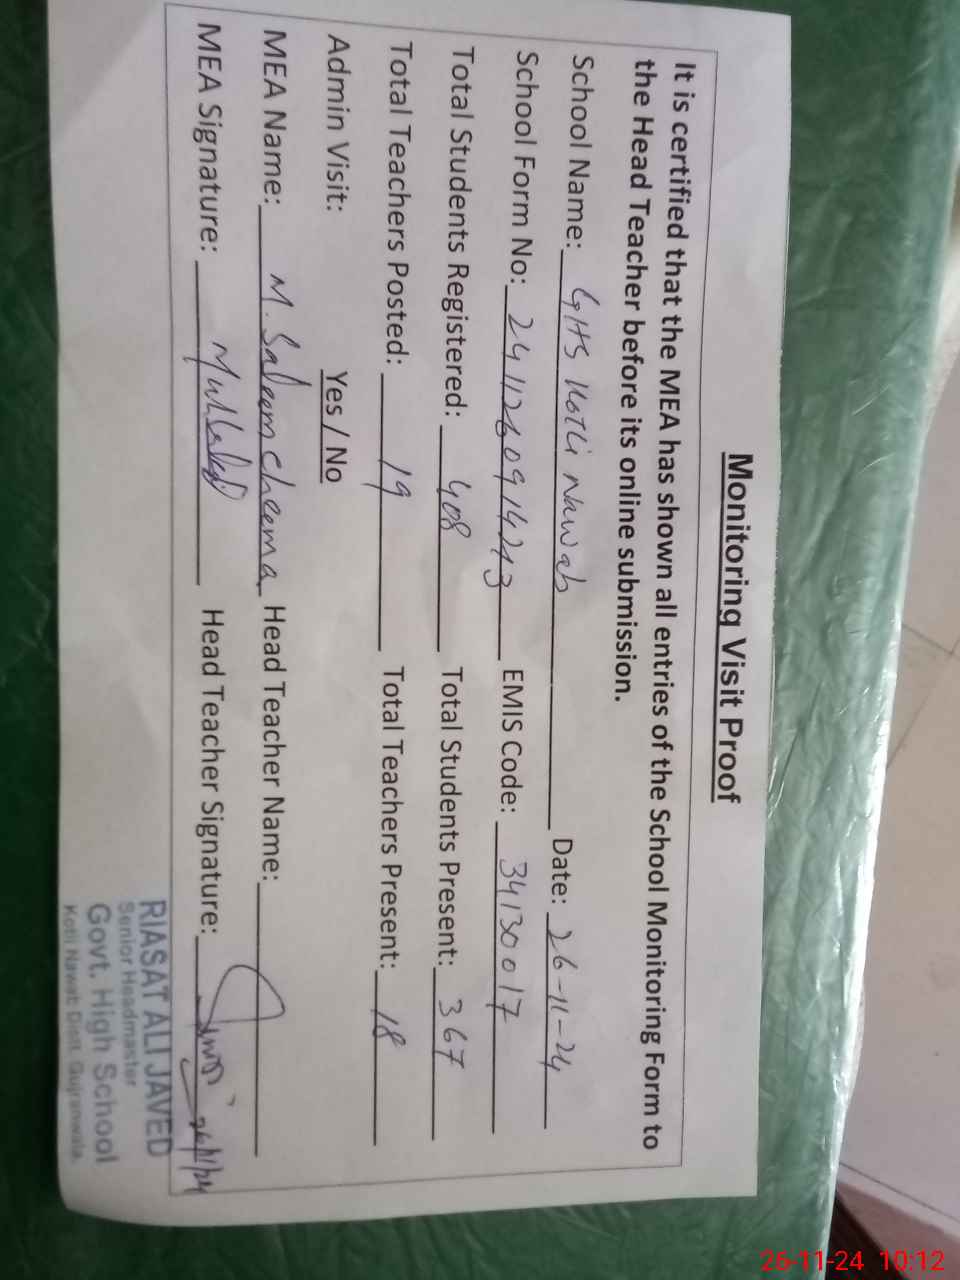 Monitoring Visit Proof
It is certified that the MEA has shown all entries of the School Monitoring Form to
the Head Teacher before its online submission.
School Name: GHS Kotli Nawab Date: 26-11-24
School Form No: 2411260914243 EMIS Code: 34130017
Total Students Registered: 408 Total Students Present: 367
Total Teachers Posted: 19 Total Teachers Present: 18
Admin Visit: Yes / No
MEA Name: M. Saleem Cheema Head Teacher Name:
MEA Signature: Head Teacher Signature: 26/11/24
RIASAT ALI JAVED
Senior Headmaster
Govt. High School
Kotli Nawab Distt. Gujranwala.
26-11-24 10:12